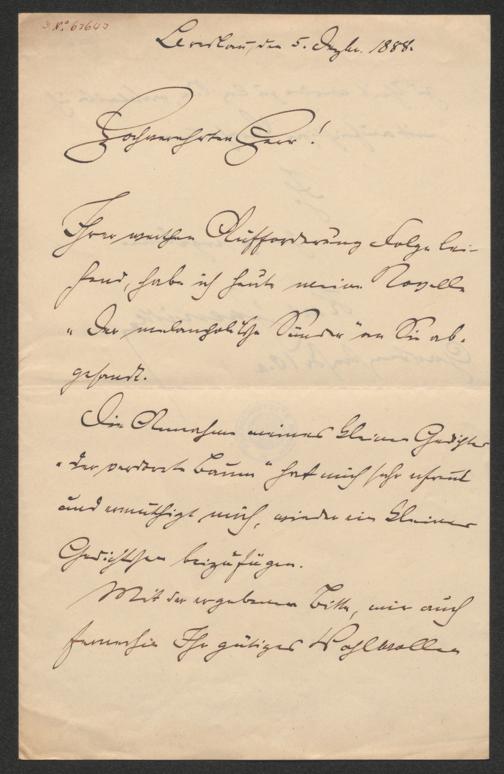 J. N. 63643
den 5. Dezbr. 1888.
Hochverehrter Herr!
Ihrer werthen Aufforderung Folge lei-
stend, habe ich heute meine Novelle
„Der melancholische Sünder“ an Sie ab-
gesandt.
Die Annahme meines kleinen Gedichtes
„Der verdorrte Baum“ hat mich sehr erfreut
und ermuthigt mich, wieder ein kleines
Gedichtchen beizufügen.
Mit der ergebenen Bitte, mir auch
fernerhin Ihr gütiges Wohlwollen